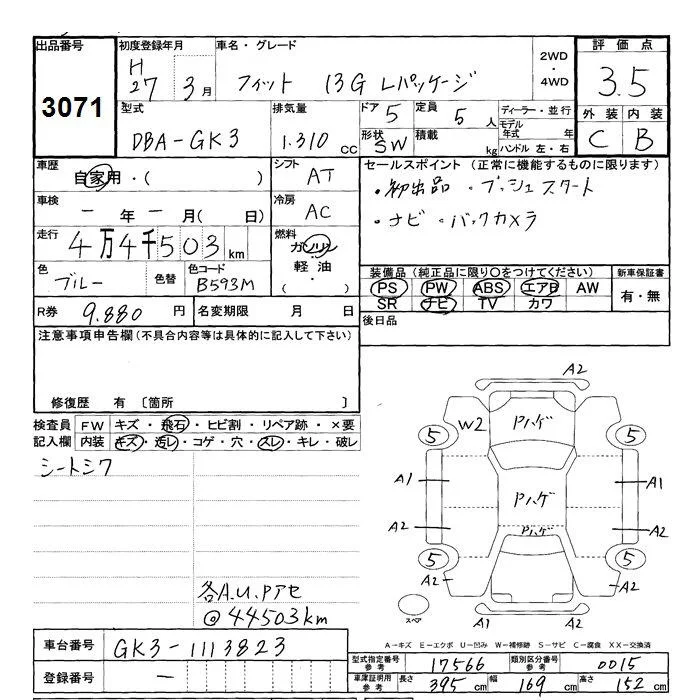 出品番号 初度登録年月 車名・グレード 2WD・4WD 評価点
3071 H27 3月 フィット 13G Lパッケージ 3.5
型式 排気量 ドア 5 定員 5人 ディーラー・並行 外装 内装
DBA-GK3 1.310 CC 形状 SW 積載 kg モデル年式 年 C B
ハンドル 左・右
車歴 自家用・( ) シフト AT セールスポイント (正常に機能するものに限ります)
車検 一年一月( 日) 冷房 AC ・初出品 ・プッシュスタート
・ナビ ・バックカメラ
走行 4万4千503km 燃料 ガソリン・軽油・( )
色 ブルー 色替 色コード B593M 装備品 (純正品に限り○をつけてください) 新車保証書
PS PW ABS エアB AW 有・無
SR ナビ TV カワ
R券 9.880円 名変期限 月 日 後日品
注意事項申告欄 (不具合内容等は具体的に記入して下さい)
修復歴 有 〔箇所 〕
検査員 FW キズ・飛石・ヒビ割・リペア跡・×要
記入欄 内装 キズ・汚レ・コゲ・穴・スレ・キレ・破レ
シートシワ
各A.U.Pアセ
@44503km
A2
W2 Pハゲ A2
5 5
A1 Pハゲ A1
A2 Pハゲ A2
5 5
A2 A2
スペア A1 A2
A-キズ E-エクボ U-凹み W-補修跡 S-サビ C-腐食 XX-交換済
車台番号 GK3-1113823
登録番号 ー
型式指定番号 参考 17566 類別区分番号 参考 0015
車庫証明用 参考 長さ 395cm 幅 169cm 高さ 152cm